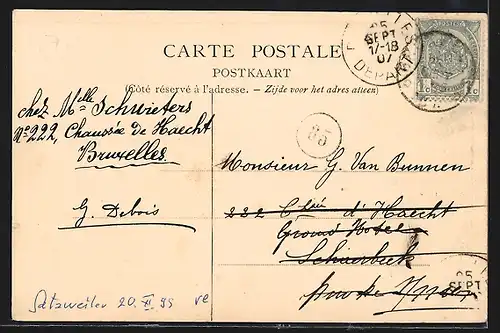 CARTE POSTALE
POSTKAART
(Côté réservé à l'adresse. - Zijde voor het adres alleen)
25
SEPT
17-18
07
DEPART
1c 1c
85
chez Mlle Schwieters
No 222, Chaussée de Haecht
Bruxelles
G. Debois
Monsieur G. Van Bunnen
222 Chée d'Haecht
Grand Hotel
Schaerbeek
25
SEPT
20. XI 99